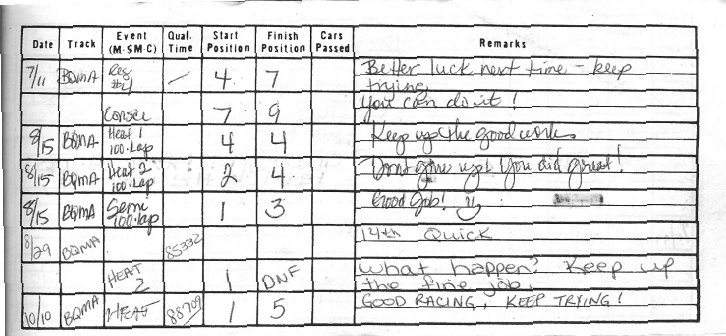 Date Track Event (M-SM-C) Qual. Time Start Position Finish Position Cars Passed Remarks
7/11 BQMA Reg #4 — 4 7 Better luck next time - keep trying,
Consee 7 9 You can do it!
8/15 BQMA Heat 1 100-Lap 4 4 Keep up the good work
8/15 BQMA Heat 2 100-Lap 2 4 Don't give up! You did great!
8/15 BQMA Semi 100-Lap 1 3 Good Job!
8/29 BQMA 85332 14th Quick
HEAT 2 1 DNF What happen? Keep up the fine job.
10/10 BQMA HEAT 88709 1 5 GOOD RACING, KEEP TRYING!